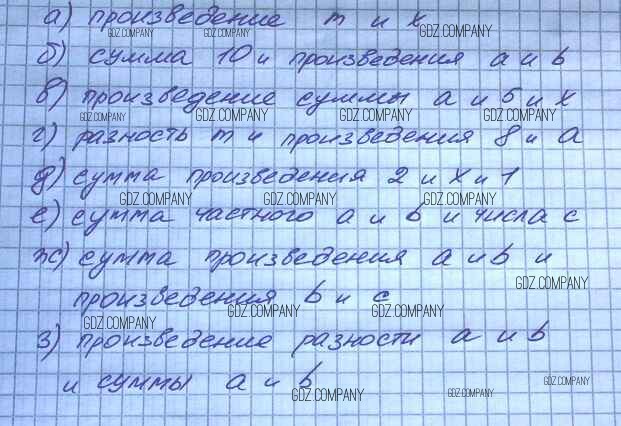 а) произведение m и x
GDZ.COMPANY GDZ.COMPANY GDZ.COMPANY
б) сумма 10 и произведения a и b
в) произведение суммы a и 5 и x
GDZ.COMPANY GDZ.COMPANY GDZ.COMPANY GDZ.COMPANY
г) разность m и произведения 8 и a
д) сумма произведения 2 и x и 1
GDZ.COMPANY GDZ.COMPANY GDZ.COMPANY
е) сумма частного a и b и числа c
ж) сумма произведения a и b и
GDZ.COMPANY
произведения b и c
GDZ.COMPANY GDZ.COMPANY GDZ.COMPANY
з) произведение разности a и b
и суммы a и b
GDZ.COMPANY GDZ.COMPANY GDZ.COMPANY